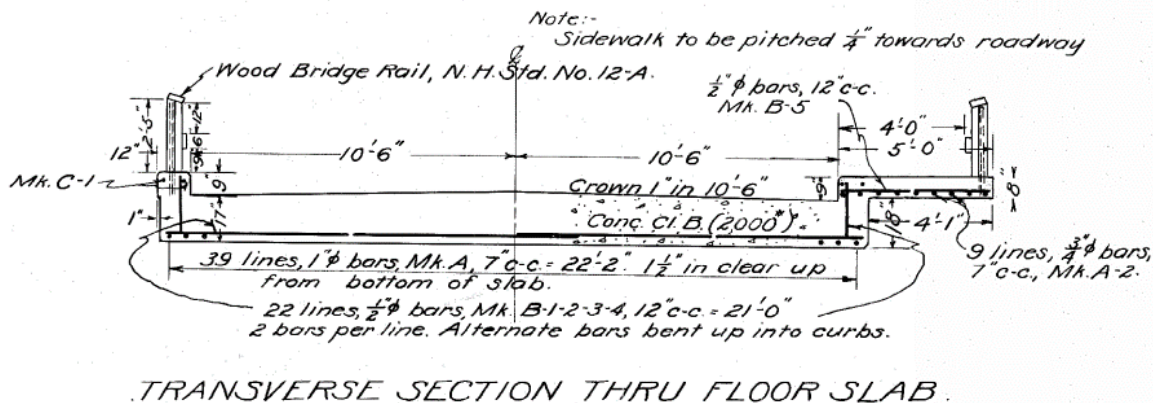 Note:-
Sidewalk to be pitched 1/4" towards roadway
℄
Wood Bridge Rail, N.H. Std. No. 12-A.
1/2" φ bars, 12" c-c.
Mk. B-5
2'-5"
12"
6"
9"
4'-0"
5'-0"
12"
10'-6"
10'-6"
Mk. C-1
9"
Crown 1" in 10'-6"
9"
8"
1"
17"
Conc. Cl. B. (2,000#)
18"
4'-1"
39 lines, 1" φ bars, Mk. A, 7" c-c. = 22'-2". 1 1/2" in clear up
from bottom of slab.
9 lines, 3/4" φ bars,
7" c-c., Mk. A-2.
22 lines, 1/2" φ bars, Mk. B-1-2-3-4, 12" c-c. = 21'-0"
2 bars per line. Alternate bars bent up into curbs.
TRANSVERSE SECTION THRU FLOOR SLAB.